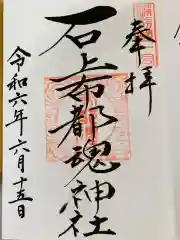 奉拝
石上布都魂神社
令和六年六月十五日